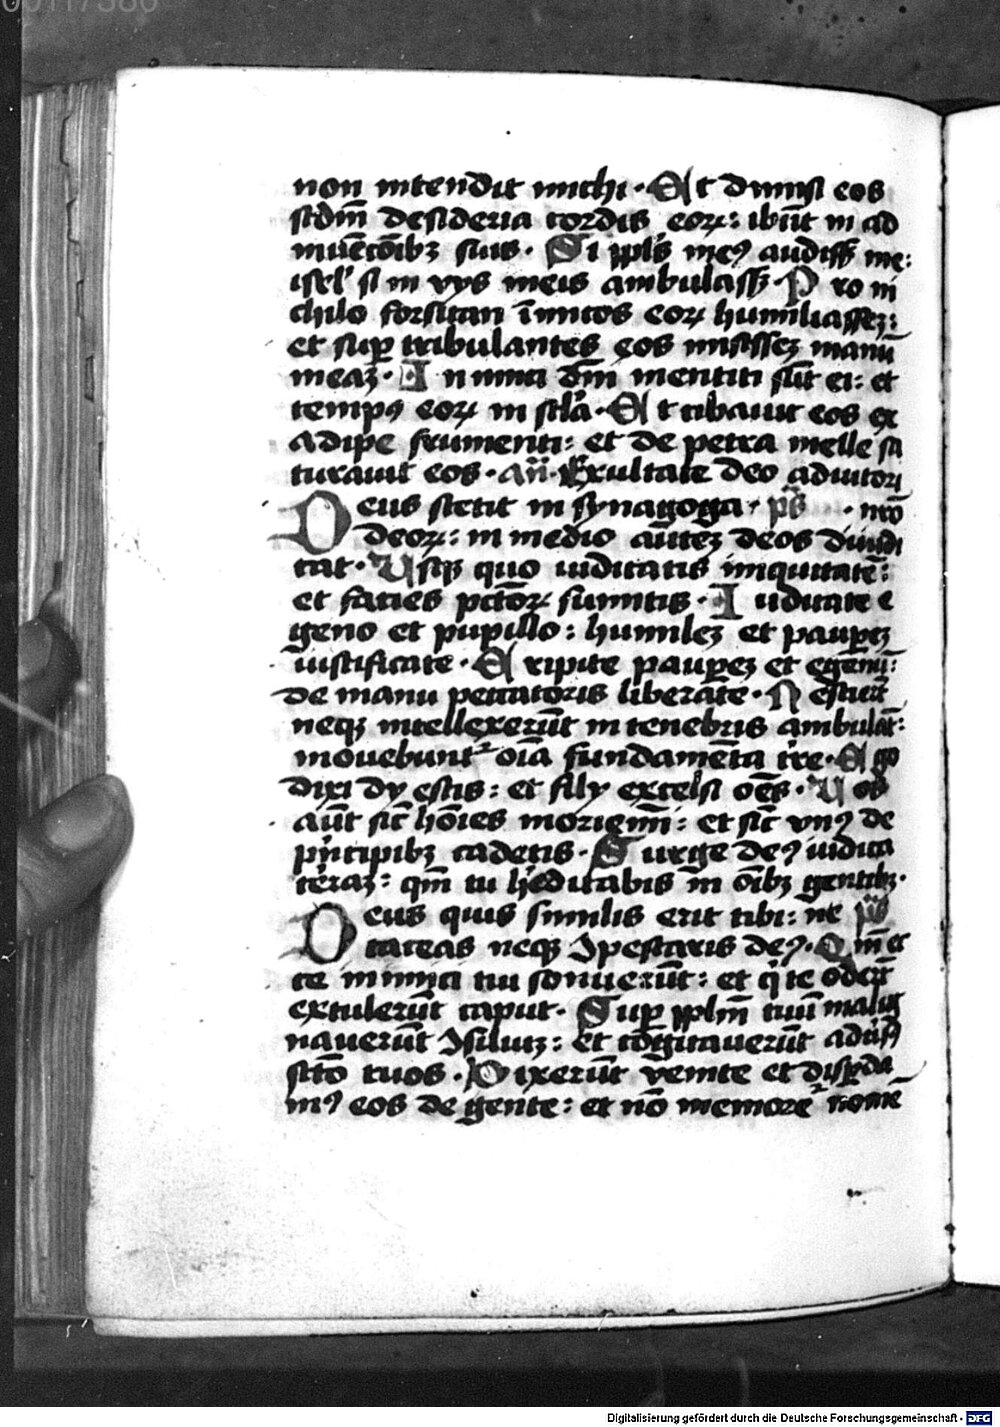 00117380
non intendit michi · Et dimisi eos
scdm̄ desideria cordis eoꝝ: ibūt in ad
inuētōibꝫ suis · Si ppl̄s meꝰ audissꝫ me:
isrl̄ si in vijs meis ambulassꝫ · Pro ni
chilo forsitan īmicos eoꝝ humiliassez:
et suꝑ tribulantes eos misissez manū
meaꝫ · Inimici dn̄i mentiti sūt ei: et
tempꝰ eoꝝ in scl̄a · Et cibauit eos ex
adipe frumenti: et de petra melle sa
turauit eos · An̄ · Exultate deo adiutori
Deus stetit in synagoga · p̄s · nr̄o
deoꝝ: in medio aūtez deos diiudi
cat · Usqꝫ quo iudicatis iniquitatē:
et facies pctōꝝ sumitis · Iudicate e
geno et pupillo: humilez et paupez
iustificate · Eripite paupez et egenū:
de manu peccatoris liberate · Nescierūt
neqꝫ intellexerūt in tenebris ambulāt:
mouebunt᷑ oīa fundamēta tr̄e · Ego
dixi dij estis: et filij excelsi oēs · Uos
aūt sic̄ hōies moriemī: et sic̄ vnꝰ de
prīcipibꝫ cadetis · Surge deꝰ iudica
terāꝫ: qm̄ tu h̄editabis in oībꝫ gentibꝫ ·
Deus quis similis erit tibi: ne p̄s
taceas neqꝫ ꝯpescaris deꝰ · Qm̄ ec
ce inimici tui sonuerūt: et q̇ te oderūt
extulerūt caput · Suꝑ pplm̄ tuū malig
nauerūt ꝯsiliuꝫ: et cōgitauerūt aduss
sctō tuos · Dixerūt venite et disꝑda
mꝰ eos de gente: et nō memoret᷑ nomē
Digitalisierung gefördert durch die Deutsche Forschungsgemeinschaft - DFG